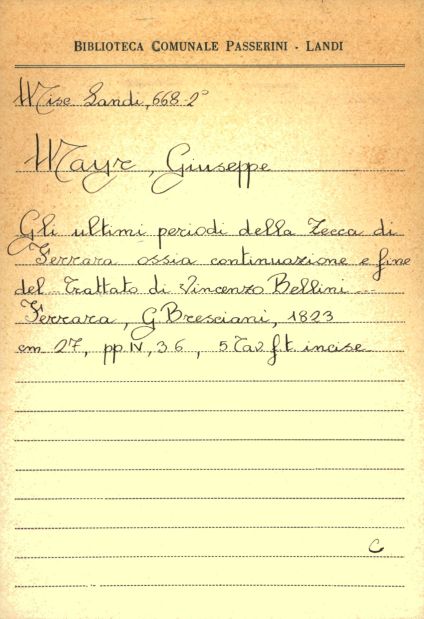 BIBLIOTECA COMUNALE PASSERINI - LANDI
Misc Landi, 668-2°
Mayr, Giuseppe
Gli ultimi periodi della Zecca di
Ferrara ossia continuazione e fine
del Trattato di Vincenzo Bellini...
Ferrara, G. Bresciani, 1823
cm 27, pp IV, 36, 5 Tav. f.t. incise
C